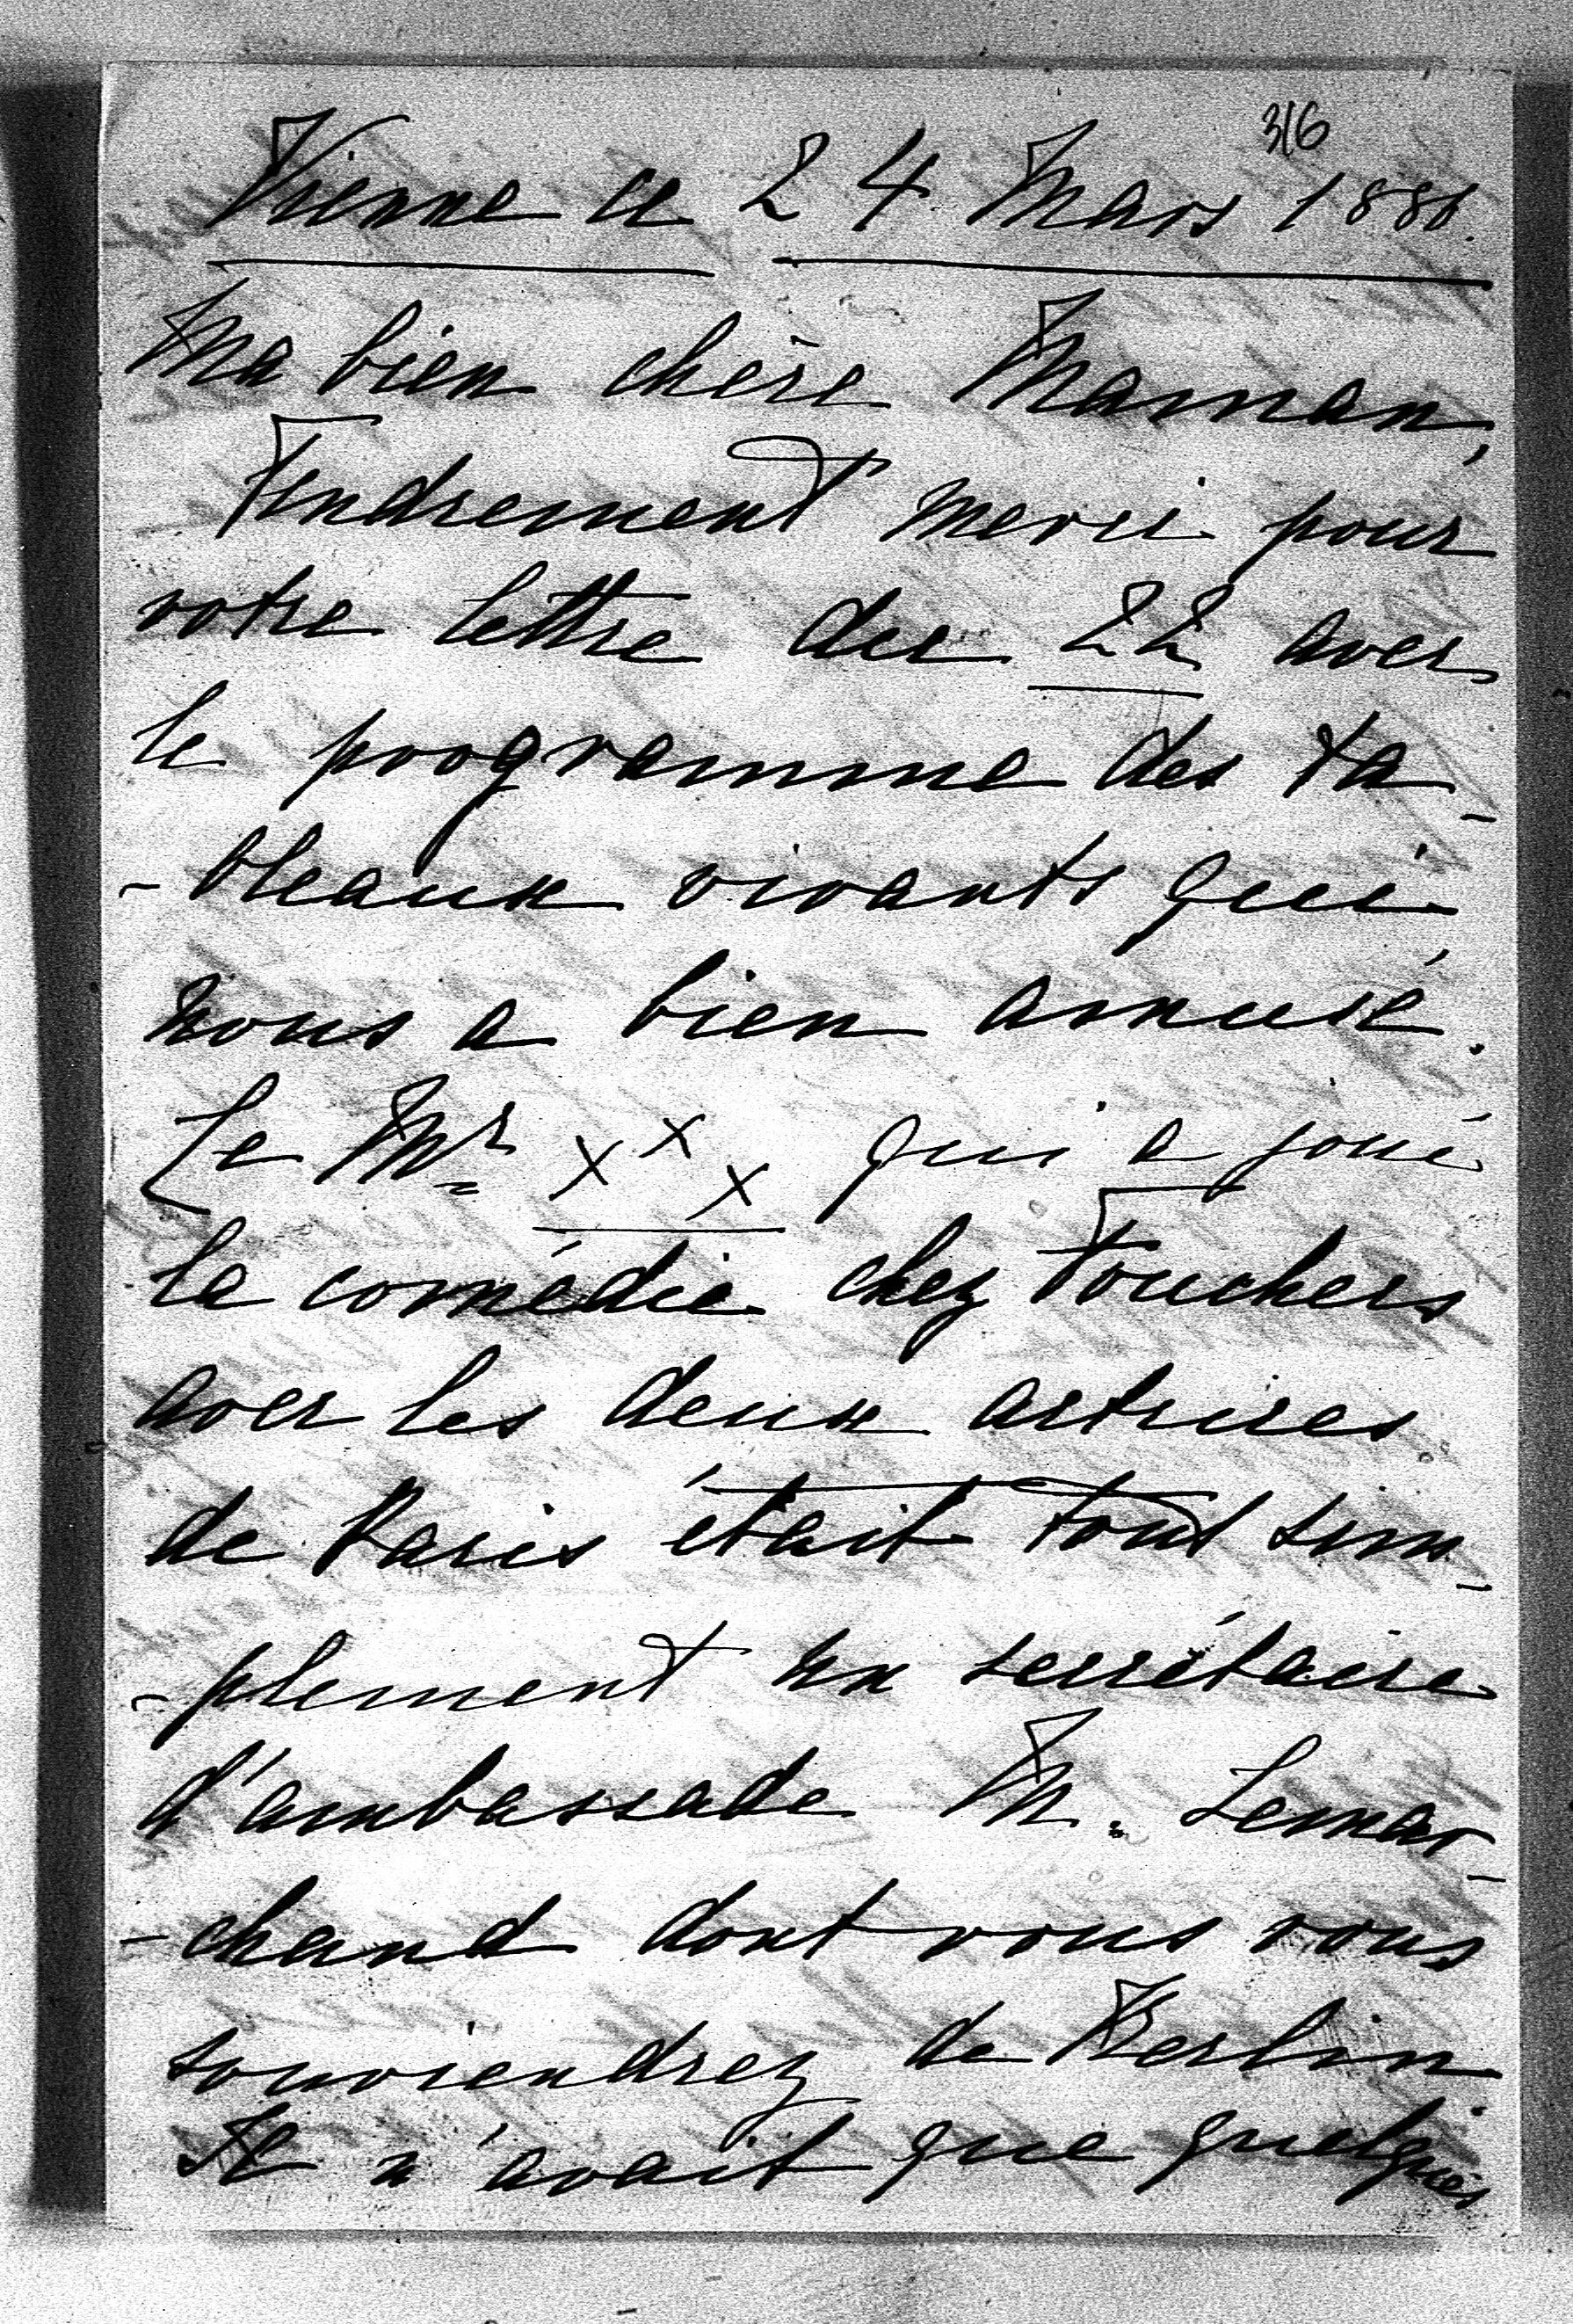 316
Vienne ce 24 Mars 1886.
Ma bien chère Maman,
Tendrement merci pour
votre lettre du 22 avec
le programme des ta-
-bleaux vivants qui
nous a bien amusé.
Le Mr xxx qui a joué
la comédie chez Fouchers
avec les deux actrices
de Paris était tout sim-
-plement un secrétaire
d'ambassade M. Lemar-
-chand dont vous vous
souviendrez de Berlin
Il n'avait que quelques